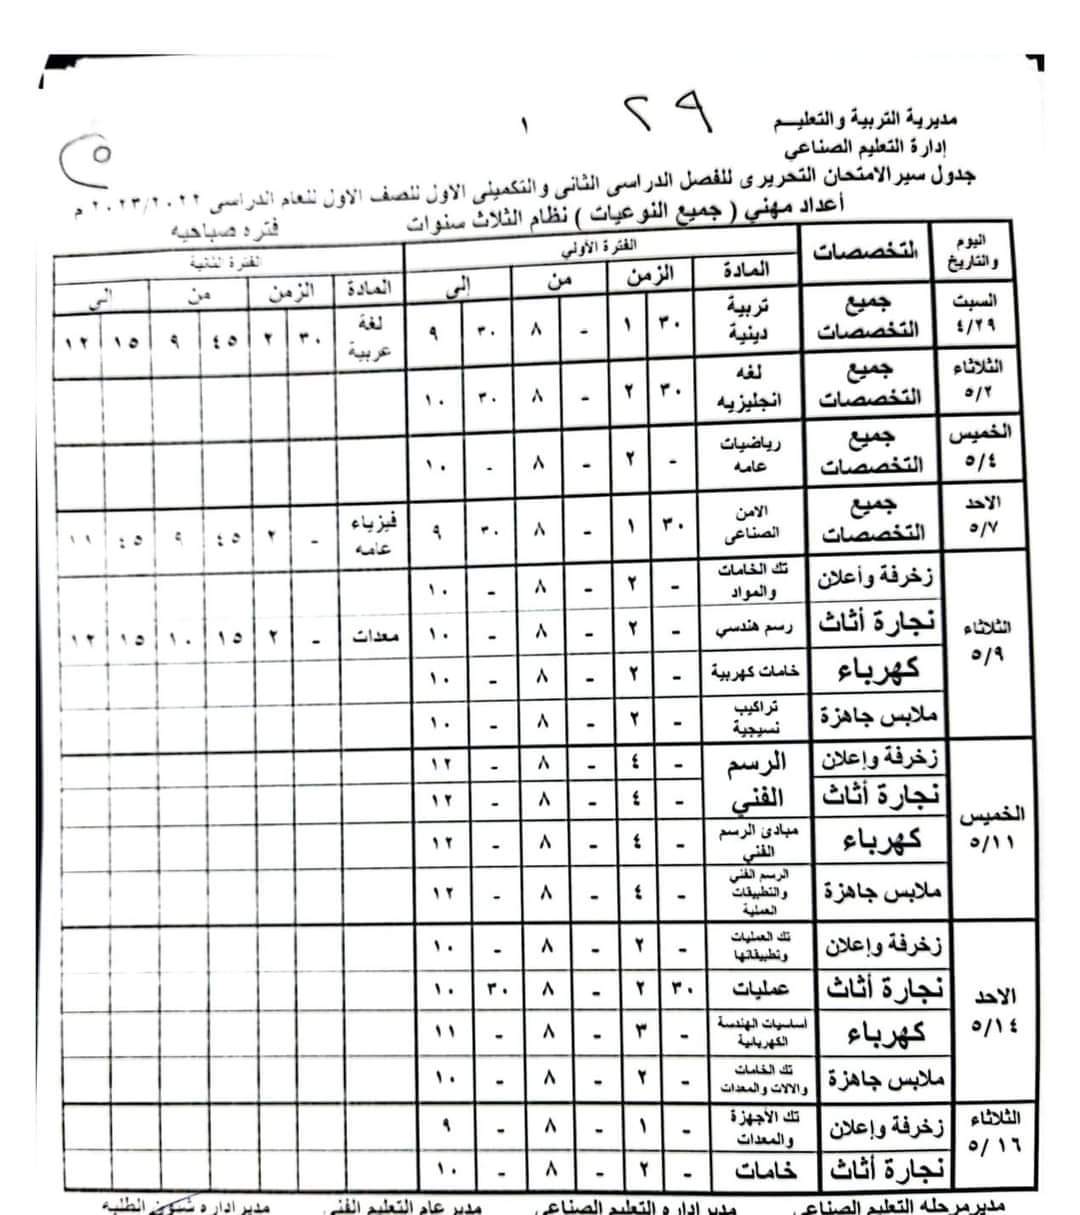 ٢٩
١
مديرية التربية والتعليـــم
إدارة التعليم الصناعى
جدول سير الامتحان التحريرى للفصل الدراسى الثانى والتكميلى الاول للصف الاول للعام الدراسى ٢٠٢٣/٢٠٢٢ م
أعداد مهني ( جميع النوعيات ) نظام الثلاث سنوات
فتره صباحيه
اليوم والتاريخ التخصصات الفترة الأولي الفترة الثانية
المادة الزمن من إلى المادة الزمن من إلى
السبت ٤/٢٩ جميع التخصصات تربية دينية ٣٠ ١ - ٨ ٣٠ ٩ لغة عربية ٣٠ ٢ ٤٥ ٩ ١٥ ١٢
الثلاثاء ٥/٢ جميع التخصصات لغه انجليزيه ٣٠ ٢ - ٨ ٣٠ ١٠
الخميس ٥/٤ جميع التخصصات رياضيات عامه - ٢ - ٨ - ١٠
الاحد ٥/٧ جميع التخصصات الامن الصناعى ٣٠ ١ - ٨ ٣٠ ٩ فيزياء عامه - ٢ ٤٥ ٩ ٤٥ ١١
الثلاثاء ٥/٩ زخرفة وأعلان تك الخامات والمواد - ٢ - ٨ - ١٠
نجارة أثاث رسم هندسي - ٢ - ٨ - ١٠ معدات - ٢ ١٥ ١٠ ١٥ ١٢
كهرباء خامات كهربية - ٢ - ٨ - ١٠
ملابس جاهزة تراكيب نسيجية - ٢ - ٨ - ١٠
الخميس ٥/١١ زخرفة وإعلان الرسم الفني - ٤ - ٨ - ١٢
نجارة أثاث - ٤ - ٨ - ١٢
كهرباء مبادى الرسم الفني - ٤ - ٨ - ١٢
ملابس جاهزة الرسم الفني والتطبيقات العملية - ٤ - ٨ - ١٢
الاحد ٥/١٤ زخرفة وإعلان تك العمليات وتطبيقاتها - ٢ - ٨ - ١٠
نجارة أثاث عمليات ٣٠ ٢ - ٨ ٣٠ ١٠
كهرباء أساسيات الهندسة الكهربائية - ٣ - ٨ - ١١
ملابس جاهزة تك الخامات والالات والمعدات - ٢ - ٨ - ١٠
الثلاثاء ٥/١٦ زخرفة وإعلان تك الأجهزة والمعدات - ١ - ٨ - ٩
نجارة أثاث خامات - ٢ - ٨ - ١٠
مدير مرحله التعليم الصناعى مدير إداره التعليم الصناعى مدير عام التعليم الفنى مدير اداره شئون الطلبه